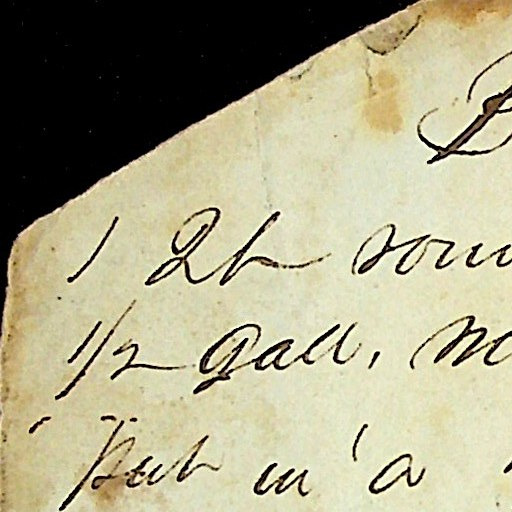 B
1 Qt sour
1/2 Gall. No
Put in a